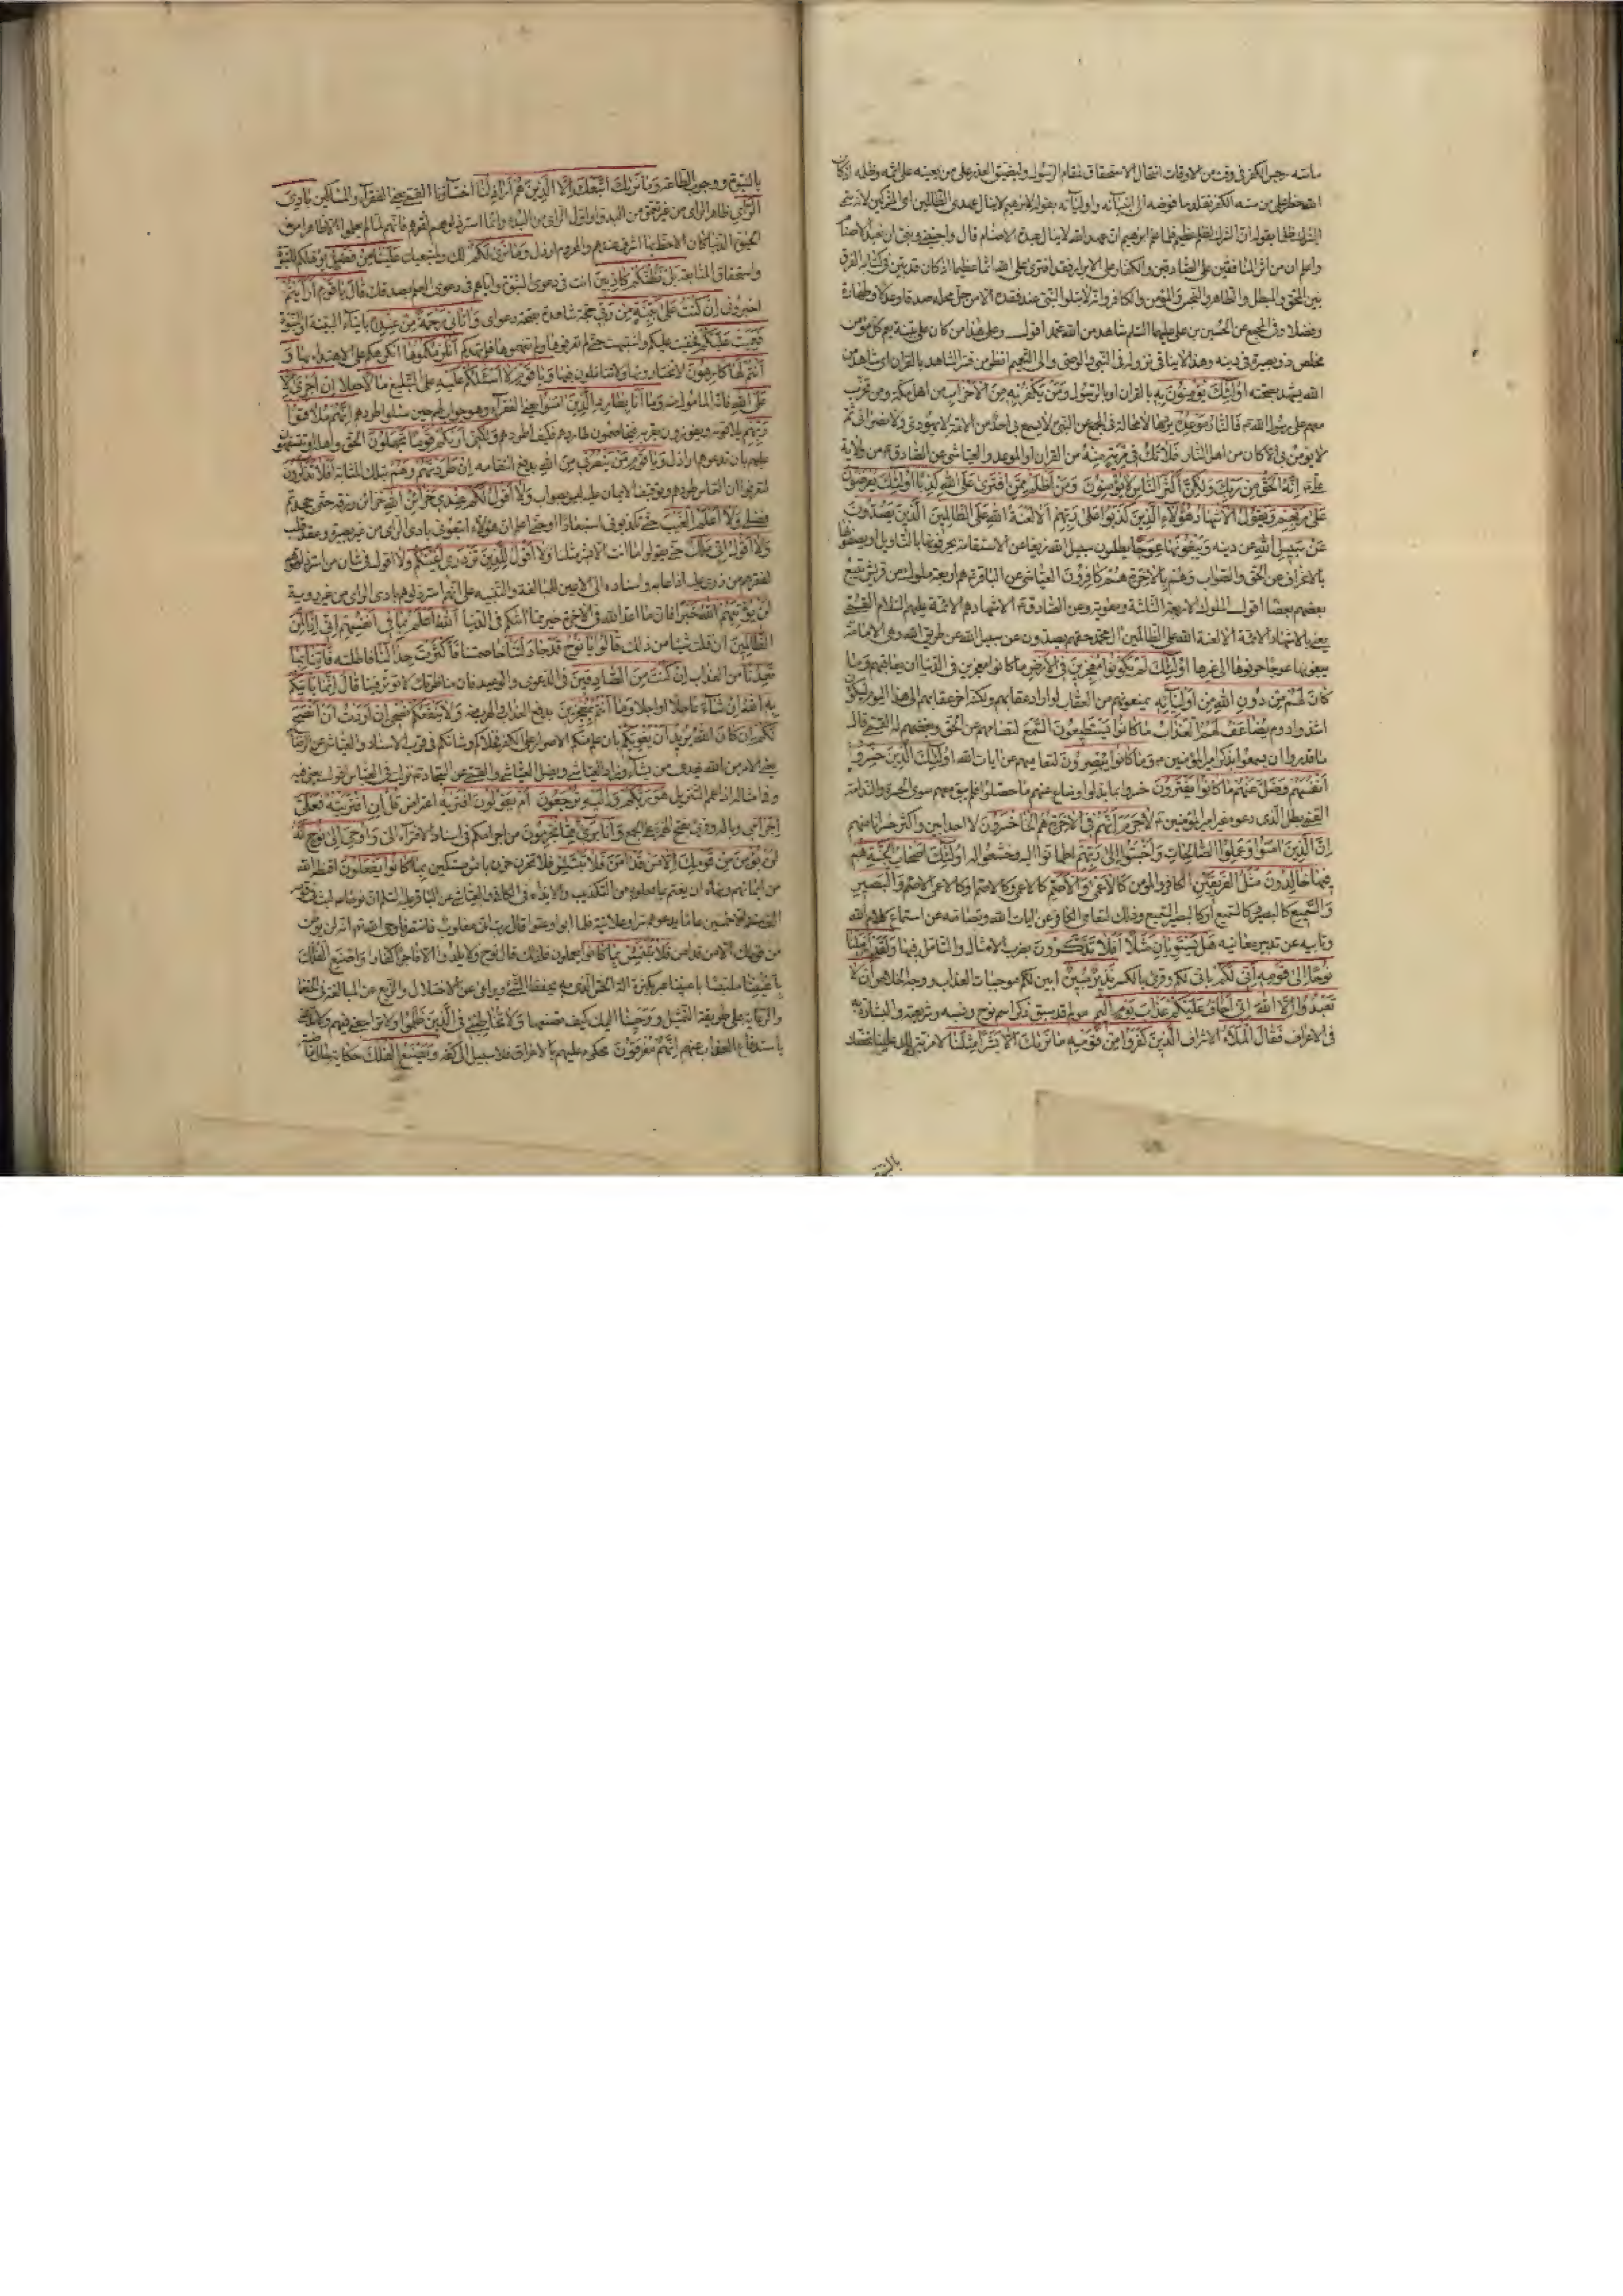 ما منه رجس الكفر في وقت من الاوقات انتقال الاستحقاق لمقام الرسول وليضيق العذر على من يعينه على اثمه وظلمه اذ كان
الله حظر على من مسه الكفر تقلد ما فوضه الى انبيائه واوليائه بقوله لابرهيم لا ينال عهدي الظالمين اي المشركين لانه سمى
الشرك ظلما بقوله ان الشرك لظلم عظيم فلما علم ابرهيم ان عهد الله لا ينال عبدة الاصنام قال واجنبني وبني ان نعبد الاصنام
واعلم ان من اثر المنافقين على الصادقين والكفار على الابرار فقد افترى على الله اثما عظيما اذ كان قد بين في كتابه الفرق
بين المحق والمبطل والطاهر والنجس والمؤمن والكافر وانه لا يتلو النبي عند فقده الا من حل محله صدقا وعدلا وطهارة
وفضلا وفي المجمع عن الحسين بن علي عليهما السلام شاهد من الله محمد اقول وعلى هذا من كان على بينة يعم كل مؤمن
مخلص ذو بصيرة في دينه وهذا لا ينافي نزوله في النبي والوصي والى التعميم انظر من فسر الشاهد بالقران اي شاهد من
الله يشهد بصحته اولئك يؤمنون به بالقران او بالرسول ومن يكفر به من الاحزاب من اهل مكة ومن تحزب
معهم على رسول الله فالنار موعده يردها لا محالة في المجمع عن النبي لا يسمع بي احد من الامة لا يهودي ولا نصراني ثم
لا يؤمن بي الا كان من اهل النار فلا تك في مرية منه من القران او الموعد والعياشي عن الصادق من ولاية
علي انه الحق من ربك ولكن اكثر الناس لا يؤمنون ومن اظلم ممن افترى على الله كذبا اولئك يعرضون
على ربهم ويقول الاشهاد هؤلاء الذين كذبوا على ربهم الا لعنة الله على الظالمين الذين يصدون
عن سبيل الله عن دينه ويبغونها عوجا يطلبون سبيل الله زيغا عن الاستقامة يحرفونها بالتاويل او يصفونها
بالانحراف عن الحق والصواب وهم بالاخرة هم كافرون العياشي عن الباقر هم اربعة ملوك من قريش يتبع
بعضهم بعضا اقول الملوك الاربعة الثلثة ومعوية وعن الصادق الاشهاد هم الائمة عليهم السلام القمي
يعني بالاشهاد الائمة الا لعنة الله على الظالمين ال محمد حقهم يصدون عن سبيل الله عن طريق الله وهي الامامة
يبغونها عوجا حرفوها الى غيرها اولئك لم يكونوا معجزين في الارض ما كانوا معجزين في الدنيا ان يعاقبهم وما
كان لهم من دون الله من اولياء يمنعونهم من العقاب لو اراد عقابهم ولكنه اخر عقابهم الى هذا اليوم ليكون
اشد وادوم يضاعف لهم العذاب ما كانوا يستطيعون السمع لتصامهم عن الحق وبغضهم له القمي قال
ما قدروا ان يسمعوا بذكر امير المؤمنين وما كانوا يبصرون لتعاميهم عن ايات الله اولئك الذين خسروا
انفسهم وضل عنهم ما كانوا يفترون خسروا بما بدلوا وضاع عنهم ما حصلوا فلم يبق معهم سوى الحسرة والندامة
القمي بطل الذي دعوه غير امير المؤمنين لا جرم انهم في الاخرة هم الاخسرون لا احد ابين واكثر خسرانا منهم
ان الذين امنوا وعملوا الصالحات واخبتوا الى ربهم اطمانوا اليه وخشعوا له اولئك اصحاب الجنة هم
فيها خالدون مثل الفريقين الكافر والمؤمن كالاعمى والاصم كالاعمى وكالاصم او كالاعمى الاصم والبصير
والسميع كالبصير وكالسميع او كالبصير السميع وذلك لتعامي الكافر عن ايات الله وتصامه عن استماع كلام الله
وتابيه عن تدبر معانيه هل يستويان مثلا افلا تذكرون بضرب الامثال والتامل فيها ولقد ارسلنا
نوحا الى قومه اني لكم باني لكم وقرئ بالكسر نذير مبين ابين لكم موجبات العذاب ووجه الخلاص ان لا
تعبدوا الا الله اني اخاف عليكم عذاب يوم اليم مولم قد سبق ذكر اسم نوح ونسبه وشريعته والبشارة به
في الاعراف فقال الملاء الاشراف الذين كفروا من قومه ما نريك الا بشرا مثلنا لا مزية لك علينا تخصك
بالنبوة
بالنبوة ووجوب الطاعة وما نريك اتبعك الا الذين هم اراذلنا اخسائنا القمي يعني الفقراء والمساكين بادي
الراي ظاهر الراي من غير تعمق من البدو او اول الراي من البدء وانما استرذلوهم لفقرهم فانهم لما لم يعلموا الا ظاهرا من
الحيوة الدنيا كان الاحظ بها اشرف عندهم والمحروم ارذل وما نرى لكم لك ولمتبعيك علينا من فضل يؤهلكم للنبوة
واستحقاق المتابعة بل نظنكم كاذبين انت في دعوى النبوة واياهم في دعوى العلم بصدقك قال يا قوم ارايتم
اخبروني ان كنت على بينة من ربي حجة شاهدة بصحة دعواي واتاني رحمة من عنده بايتاء البينة او النبوة
فعميت عليكم فخفيت عليكم واشتبهت حتى لم تعرفوها ولم تفهموها فلم تهدكم انلزمكموها انكرهكم على الاهتداء بها و
انتم لها كارهون لا تختارونها ولا تتاملون فيها ويا قوم لا اسئلكم عليه على التبليغ مالا جعلا ان اجري الا
على الله فانه المامول منه وما انا بطارد الذين امنوا يعني الفقراء وهو جواب لهم حين سئلوا طردهم انهم ملاقوا
ربهم يلاقونه ويفوزون بقربه فيخاصمون طاردهم فكيف اطردهم ولكني اريكم قوما تجهلون الحق واهله او تتسفهون
عليهم بان تدعوهم اراذل ويا قوم من ينصرني من الله بدفع انتقامه ان طردتهم وهم بتلك المثابة افلا تذكرون
لتعرفوا ان التماس طردهم وتوقيف الايمان عليه ليس بصواب ولا اقول لكم عندي خزائن الله خزائن رزقه حتى جحدتم
فضلي ولا اعلم الغيب حتى تكذبوني استبعادا او حتى اعلم ان هؤلاء اتبعوني بادي الراي من غير بصيرة وعقد قلب
ولا اقول اني ملك حتى تقولوا ما انت الا بشر مثلنا ولا اقول للذين تزدري اعينكم ولا اقول في شان من استرذلتموهم
لفقرهم من زرى عليه اذا عابه واسناده الى الاعين للمبالغة والتنبيه على انهم استرذلوهم بادي الراي من غير روية
لن يؤتيهم الله خيرا فان ما اعد الله في الاخرة خير مما اتيكم في الدنيا الله اعلم بما في انفسهم اني اذا لمن
الظالمين ان قلت شيئا من ذلك قالوا يا نوح قد جادلتنا خاصمتنا فاكثرت جدالنا فاطلته فاتنا بما
تعدنا من العذاب ان كنت من الصادقين في الدعوى والوعيد فان مناظرتك لا تؤثر فينا قال انما ياتيكم
به الله ان شاء عاجلا او اجلا وما انتم بمعجزين بدفع العذاب والهرب منه ولا ينفعكم نصحي ان اردت ان انصح
لكم ان كان الله يريد ان يغويكم بان علم منكم الاصرار على الكفر فخلاكم وشانكم في قرب الاسناد والعياشي عن الرضا
يعني الامر من الله يهدي من يشاء وزاد العياشي ويضل العياشي والقمي عن السجاد نزلت في العباس قوله يعني فيه
وفي امثاله اذ اعم التنزيل هو ربكم واليه ترجعون ام يقولون افتريه اعتراض قل ان افتريته فعلي
اجرامي وباله وقرئ بفتح الهمزة على الجمع وانا بريء مما تجرمون من اجرامكم في اسناد الافتراء الي واوحي الى نوح انه
لن يؤمن من قومك الا من قد امن فلا تبتئس فلا تحزن حزن بائس مستكين بما كانوا يفعلون اقنطه الله
من ايمانهم ونهاه ان يغتم بما فعلوه من التكذيب والايذاء في الكافي والعياشي عن الباقر عليه السلام ان نوحا لبث في قومه
الف سنة الا خمسين عاما يدعوهم سرا وعلانية فلما ابوا وعتوا قال رب اني مغلوب فانتصر فاوحى الله اليه انه لن يؤمن
من قومك الا من قد امن فلا تبتئس بما كانوا يعملون فلذلك قال نوح ولا يلدوا الا فاجرا كفارا واصنع الفلك
باعيننا ملتبسا باعيننا عبر بكثرة الة الحس الذي به يحفظ الشيء ويراعى عن الاختلال والزيغ عن المبالغة في الحفظ
والرعاية على طريقة التمثيل ووحينا اليك كيف تصنعها ولا تخاطبني في الذين ظلموا ولا تراجعني فيهم ولا تدعني
باستدفاع العذاب عنهم انهم مغرقون محكوم عليهم بالاغراق فلا سبيل الى كفه ويصنع الفلك حكاية حال ماضية